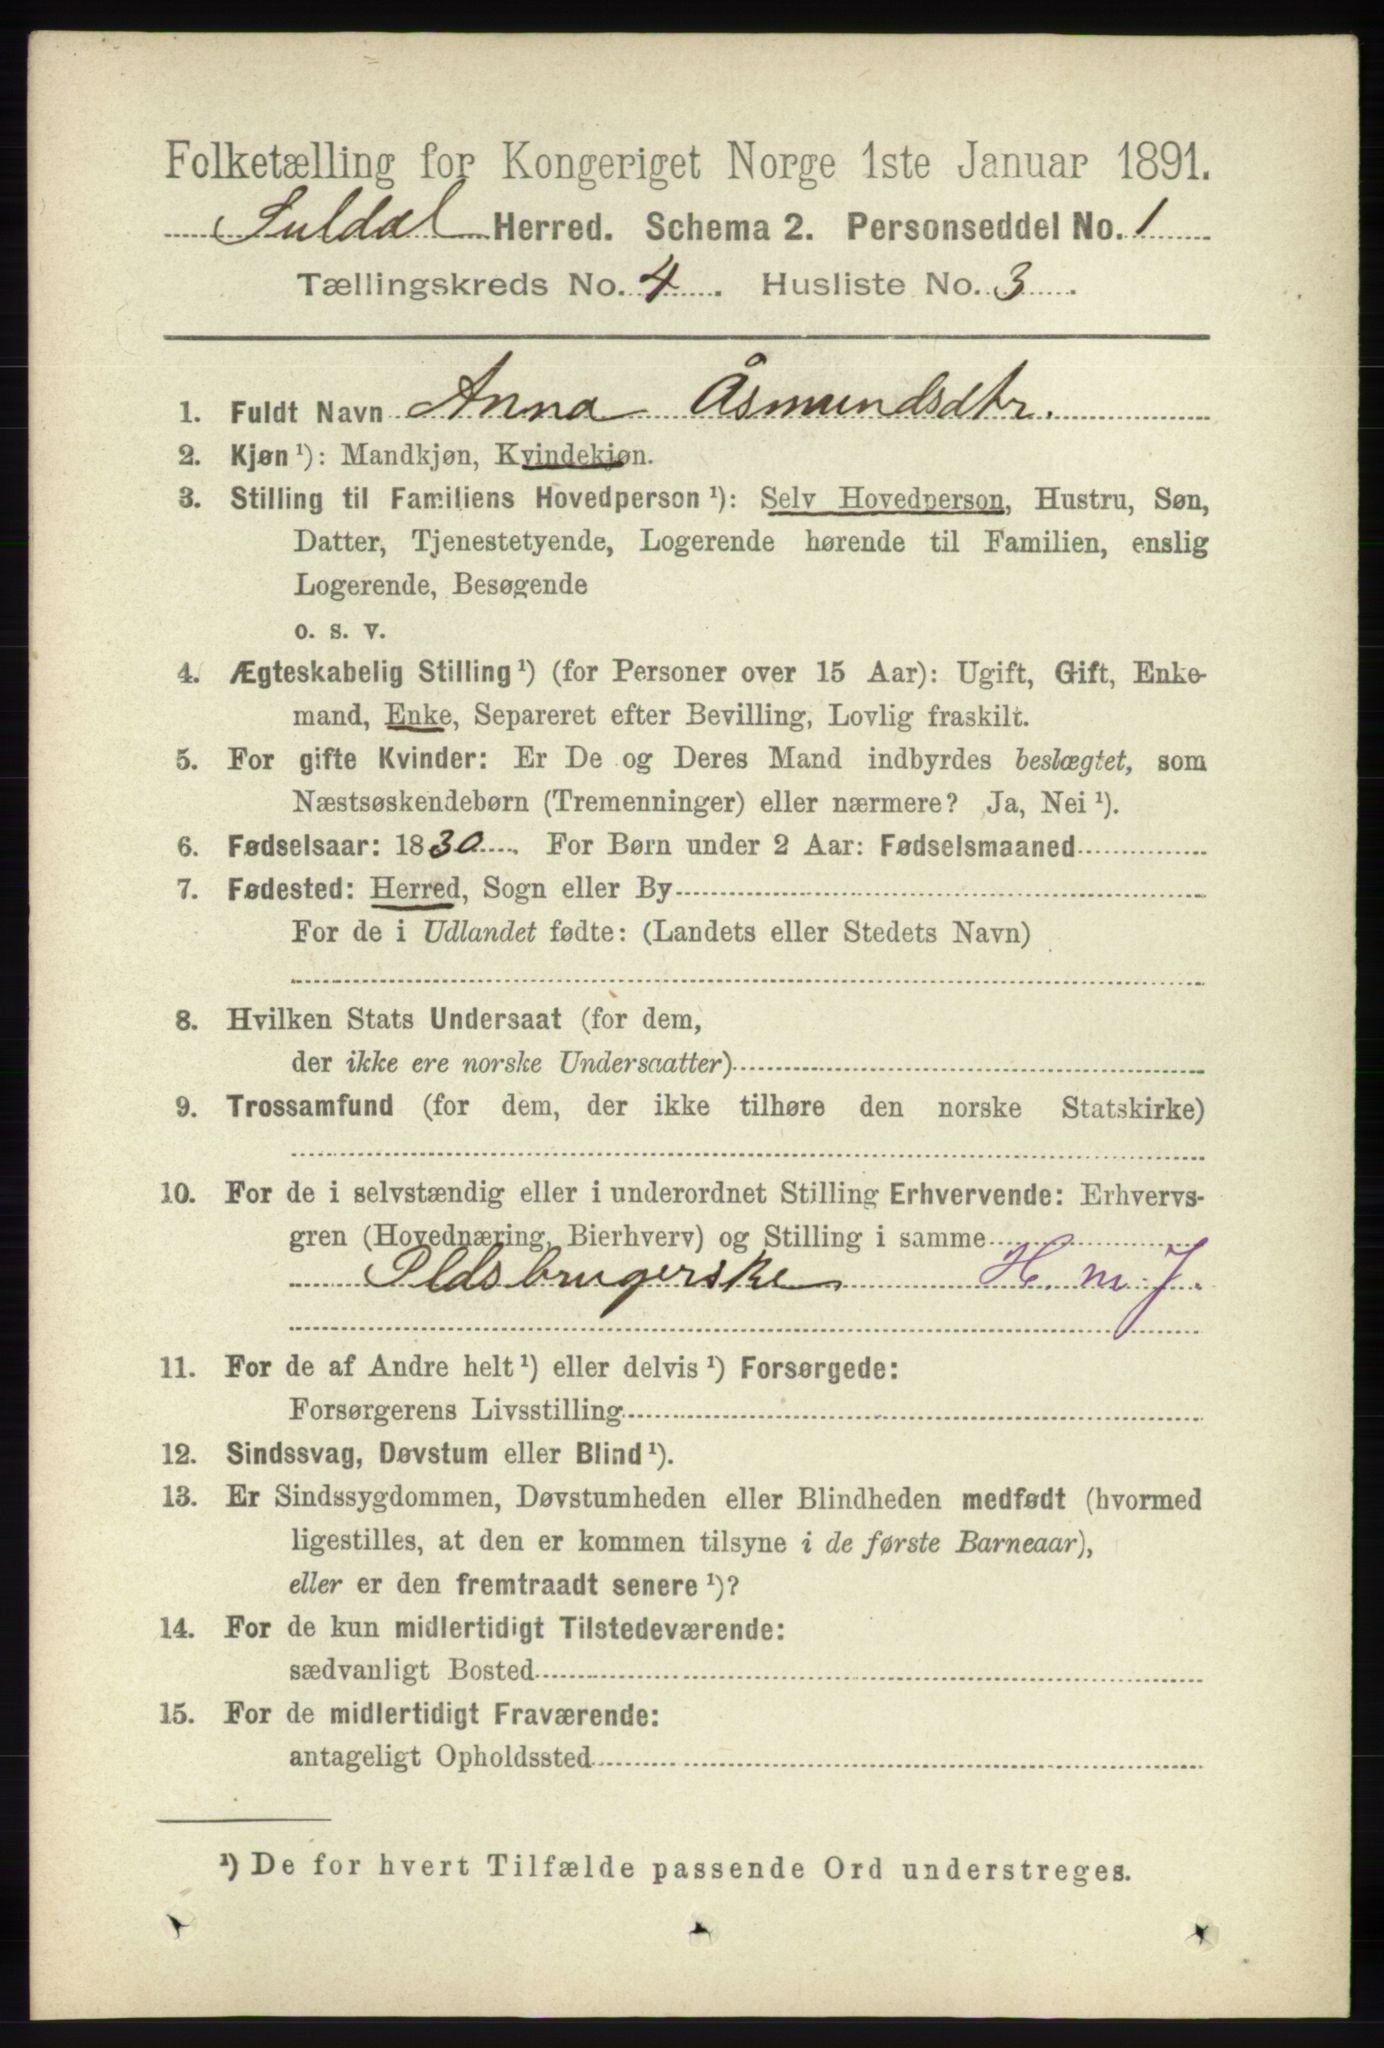 Folketælling for Kongeriget Norge 1ste Januar 1891.
Suldal Herred. Schema 2. Personseddel No. 1
Tællingskreds No. 4. Husliste No. 3.
1. Fuldt Navn Anna Åsmundsdtr.
2. Kjøn ¹): Mandkjøn, Kvindekjøn.
3. Stilling til Familiens Hovedperson ¹): Selv Hovedperson, Hustru, Søn,
Datter, Tjenestetyende, Logerende hørende til Familien, enslig
Logerende, Besøgende
o. s. v.
4. Ægteskabelig Stilling ¹) (for Personer over 15 Aar): Ugift, Gift, Enke-
mand, Enke, Separeret efter Bevilling, Lovlig fraskilt.
5. For gifte Kvinder: Er De og Deres Mand indbyrdes beslægtet, som
Næstsøskendebørn (Tremenninger) eller nærmere? Ja, Nei ¹).
6. Fødselsaar: 1830. For Børn under 2 Aar: Fødselsmaaned
7. Fødested: Herred, Sogn eller By
For de i Udlandet fødte: (Landets eller Stedets Navn)
8. Hvilken Stats Undersaat (for dem,
der ikke ere norske Undersaatter)
9. Trossamfund (for dem, der ikke tilhøre den norske Statskirke)
10. For de i selvstændig eller i underordnet Stilling Erhvervende: Erhvervs-
gren (Hovednæring, Bierhverv) og Stilling i samme
Pldsbrugerske H. m. J.
11. For de af Andre helt ¹) eller delvis ¹) Forsørgede:
Forsørgerens Livsstilling
12. Sindssvag, Døvstum eller Blind ¹).
13. Er Sindssygdommen, Døvstumheden eller Blindheden medfødt (hvormed
ligestilles, at den er kommen tilsyne i de første Barneaar),
eller er den fremtraadt senere ¹)?
14. For de kun midlertidigt Tilstedeværende:
sædvanligt Bosted
15. For de midlertidigt Fraværende:
antageligt Opholdssted
¹) De for hvert Tilfælde passende Ord understreges.